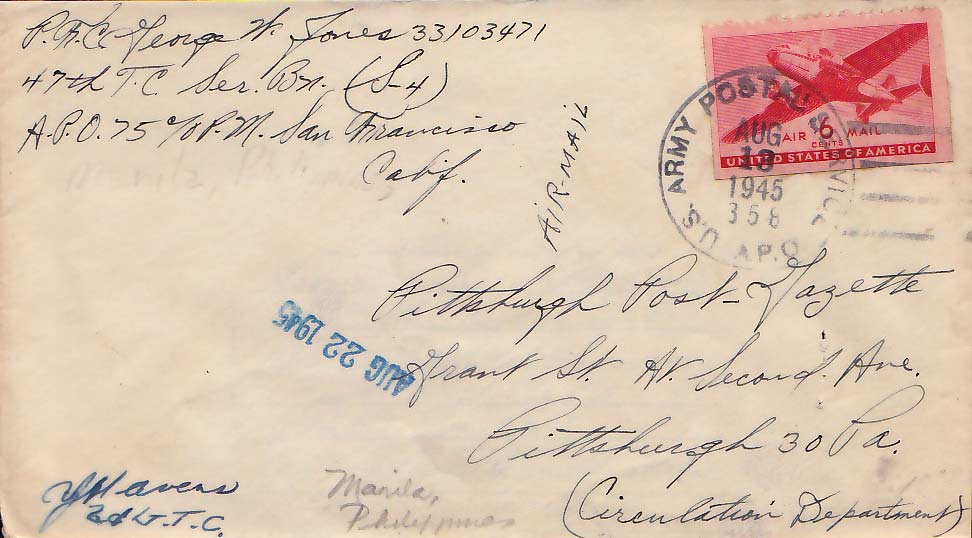 P.F.C. George W. Jones 33103471
47th T.C. Ser. Bn. (S-4)
A.P.O. 75 c/o P.M. San Francisco
Calif.
AIR-MAIL
U.S. ARMY POSTAL SERVICE
AUG
13
1945
358
A.P.O.
AIR 6 MAIL
CENTS
UNITED STATES OF AMERICA
Pittsburgh Post-Gazette
Grant St. At Second Ave.
Pittsburgh 30 Pa.
(Circulation Department)
AUG 22 1945
Havens
2d Lt. T.C.
Manila,
Philippines